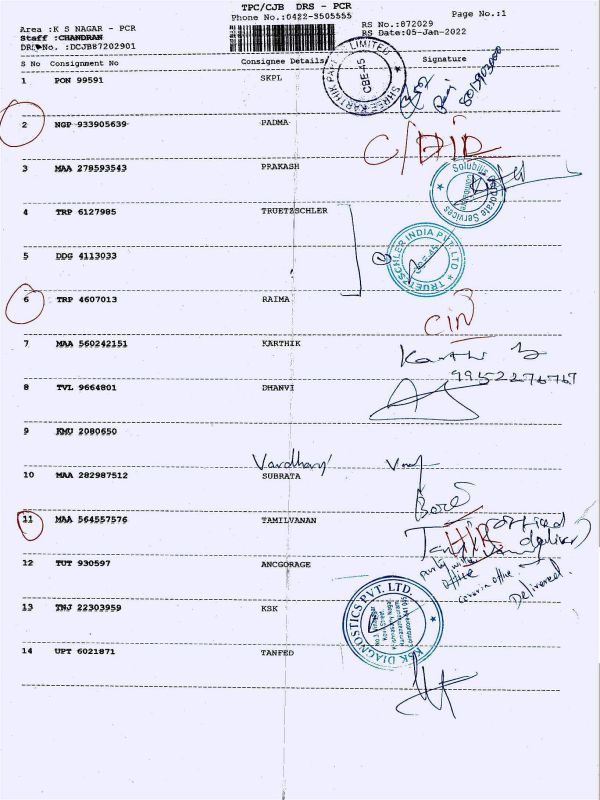 TPC/CJB DRS - PCR
Phone No.:0422-3505555
Page No.:1
Area :K S NAGAR - PCR
RS No.:872029
Staff :CHANDRAN
RS Date:05-Jan-2022
DRS No. :DCJB87202901
S No Consignment No Consignee Details Signature
1 PON 99591 SKPL
SHREE KARTHIK PAPER LIMITED CBE-45
2 NGP 933905639 PADMA
3 MAA 279593543 PRAKASH
Solubilis Corporate Services Coimbatore
4 TRP 6127985 TRUETZSCHLER
TRUETZSCHLER INDIA PVT. LTD CBE-45
5 DDG 4113033
6 TRP 4607013 RAIMA
7 MAA 560242151 KARTHIK
9952276767
8 TVL 9664801 DHANVI
9 KMU 2080650
Vardhany
10 MAA 282987512 SUBRATA
11 MAA 564557576 TAMILVANAN
12 TUT 930597 ANCGORAGE
office
Delivered.
13 TNJ 22303959 KSK
KSK DIAGNOSTICS PVT. LTD.
14 UPT 6021871 TANFED